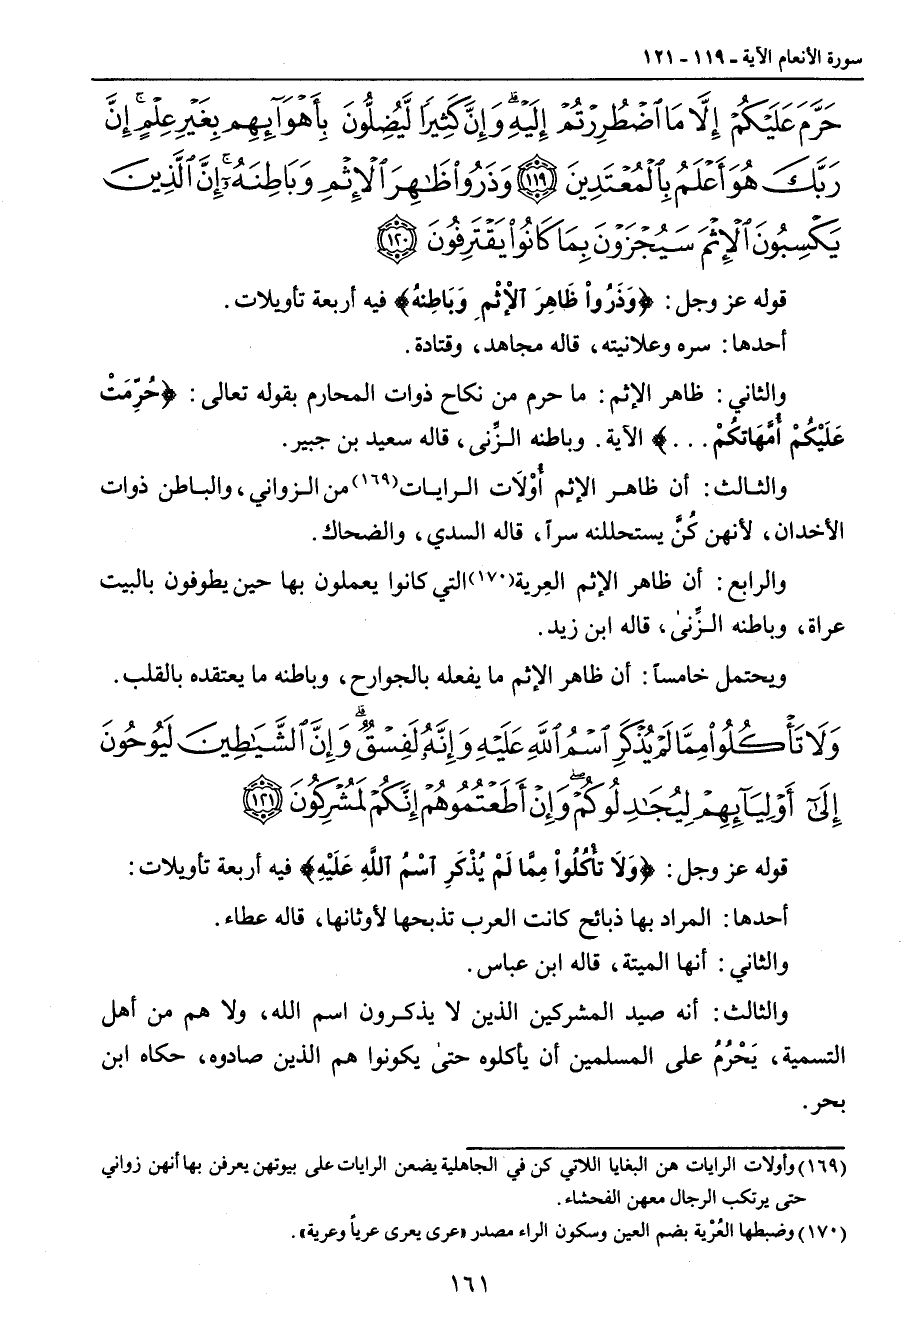 سورة الأنعام الآية ـ ١١٩ - ١٢١
حَرَّمَ عَلَيْكُمْ إِلَّا مَا ٱضْطُرِرْتُمْ إِلَيْهِ ۗ وَإِنَّ كَثِيرًا لَّيُضِلُّونَ بِأَهْوَآئِهِم بِغَيْرِ عِلْمٍ ۚ إِنَّ
رَبَّكَ هُوَ أَعْلَمُ بِٱلْمُعْتَدِينَ ﴿١١٩﴾ وَذَرُوا۟ ظَٰهِرَ ٱلْإِثْمِ وَبَاطِنَهُۥٓ ۚ إِنَّ ٱلَّذِينَ
يَكْسِبُونَ ٱلْإِثْمَ سَيُجْزَوْنَ بِمَا كَانُوا۟ يَقْتَرِفُونَ ﴿١٢٠﴾
قوله عز وجل: ﴿وَذَرُواْ ظَاهِرَ ٱلْإِثْمِ وَبَاطِنَهُ﴾ فيه أربعة تأويلات.
أحدها: سره وعلانيته، قاله مجاهد، وقتادة.
والثاني: ظاهر الإثم: ما حرم من نكاح ذوات المحارم بقوله تعالى: ﴿حُرِّمَتْ
عَلَيْكُمْ أُمَّهَاتُكُمْ . . .﴾ الآية. وباطنه الزِّنى، قاله سعيد بن جبير.
والثالث: أن ظاهر الإثم أُوْلَات الرايات(١٦٩) من الزواني، والباطن ذوات
الأخدان، لأنهن كُنَّ يستحللنه سراً، قاله السدي، والضحاك.
والرابع: أن ظاهر الإثم العِرية(١٧٠) التي كانوا يعملون بها حين يطوفون بالبيت
عراة، وباطنه الزِّنىٰ، قاله ابن زيد.
ويحتمل خامساً: أن ظاهر الإثم ما يفعله بالجوارح، وباطنه ما يعتقده بالقلب.
وَلَا تَأْكُلُوا۟ مِمَّا لَمْ يُذْكَرِ ٱسْمُ ٱللَّهِ عَلَيْهِ وَإِنَّهُۥ لَفِسْقٌ ۗ وَإِنَّ ٱلشَّيَٰطِينَ لَيُوحُونَ
إِلَىٰٓ أَوْلِيَآئِهِمْ لِيُجَٰدِلُوكُمْ ۖ وَإِنْ أَطَعْتُمُوهُمْ إِنَّكُمْ لَمُشْرِكُونَ ﴿١٢١﴾
قوله عز وجل: ﴿وَلَا تَأْكُلُواْ مِمَّا لَمْ يُذْكَرِ ٱسْمُ ٱللَّهِ عَلَيْهِ﴾ فيه أربعة تأويلات:
أحدها: المراد بها ذبائح كانت العرب تذبحها لأوثانها، قاله عطاء.
والثاني: أنها الميتة، قاله ابن عباس.
والثالث: أنه صيد المشركين الذين لا يذكرون اسم الله، ولا هم من أهل
التسمية، يَحْرُمُ على المسلمين أن يأكلوه حتىٰ يكونوا هم الذين صادوه، حكاه ابن
بحر.
(١٦٩) وأولات الرايات هن البغايا اللاتي كن في الجاهلية يضعن الرايات على بيوتهن يعرفن بها أنهن زواني
حتى يرتكب الرجال معهن الفحشاء.
(١٧٠) وضبطها العُرْية بضم العين وسكون الراء مصدر «عرى يعرى عرياً وعرية».
١٦١